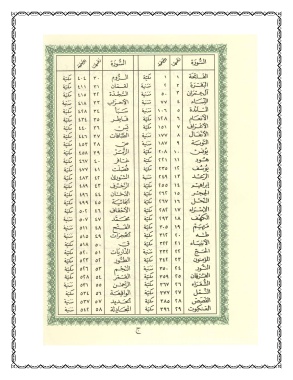 السُّورَة رقمها الصفحة السُّورَة رقمها الصفحة
الفَاتِحَة ١ ١ مكيّة الرُّوم ٣٠ ٤٠٤ مكيّة
البَقَرَة ٢ ٢ مدنيّة لقمَان ٣١ ٤١١ مكيّة
آل عِمرَان ٣ ٥٠ مدنيّة السَّجدَة ٣٢ ٤١٥ مكيّة
النِّسَاء ٤ ٧٧ مدنيّة الأحزَاب ٣٣ ٤١٨ مدنيّة
المَائدة ٥ ١٠٦ مدنيّة سَبَأ ٣٤ ٤٢٨ مكيّة
الأنعَام ٦ ١٢٨ مكيّة فَاطِر ٣٥ ٤٣٤ مكيّة
الأعرَاف ٧ ١٥١ مكيّة يسٓ ٣٦ ٤٤٠ مكيّة
الأنفَال ٨ ١٧٧ مدنيّة الصَّافات ٣٧ ٤٤٦ مكيّة
التوبَة ٩ ١٨٧ مدنيّة صٓ ٣٨ ٤٥٣ مكيّة
يُونُس ١٠ ٢٠٨ مكيّة الزُّمَر ٣٩ ٤٥٨ مكيّة
هُود ١١ ٢٢١ مكيّة غَافِر ٤٠ ٤٦٧ مكيّة
يُوسُف ١٢ ٢٣٥ مكيّة فُصِّلَت ٤١ ٤٧٧ مكيّة
الرَّعد ١٣ ٢٤٩ مدنيّة الشّورىٰ ٤٢ ٤٨٣ مكيّة
إبراهِيم ١٤ ٢٥٥ مكيّة الزّخرُف ٤٣ ٤٨٩ مكيّة
الحِجر ١٥ ٢٦٢ مكيّة الدّخَان ٤٤ ٤٩٦ مكيّة
النَّحل ١٦ ٢٦٧ مكيّة الجَاثية ٤٥ ٤٩٩ مكيّة
الإسرَاء ١٧ ٢٨٢ مكيّة الأحقاف ٤٦ ٥٠٢ مكيّة
الكهف ١٨ ٢٩٣ مكيّة محَمَّد ٤٧ ٥٠٧ مدنيّة
مَريَم ١٩ ٣٠٥ مكيّة الفَتْح ٤٨ ٥١١ مدنيّة
طه ٢٠ ٣١٢ مكيّة الحُجرَات ٤٩ ٥١٥ مدنيّة
الأنبيَاء ٢١ ٣٢٢ مكيّة قٓ ٥٠ ٥١٨ مكيّة
الحَج ٢٢ ٣٣٢ مدنيّة الذّاريَات ٥١ ٥٢٠ مكيّة
المؤمنون ٢٣ ٣٤٢ مكيّة الطُّور ٥٢ ٥٢٣ مكيّة
النُّور ٢٤ ٣٥٠ مدنيّة النّجْم ٥٣ ٥٢٦ مكيّة
الفُرقان ٢٥ ٣٥٩ مكيّة القَمَر ٥٤ ٥٢٨ مكيّة
الشُّعَرَاء ٢٦ ٣٦٧ مكيّة الرَّحمٰن ٥٥ ٥٣١ مدنيّة
النَّمل ٢٧ ٣٧٧ مكيّة الوَاقِعَة ٥٦ ٥٣٤ مكيّة
القَصَص ٢٨ ٣٨٥ مكيّة الحَديد ٥٧ ٥٣٧ مدنيّة
العَنكبوت ٢٩ ٣٩٦ مكيّة المجَادلة ٥٨ ٥٤٢ مدنيّة
ج